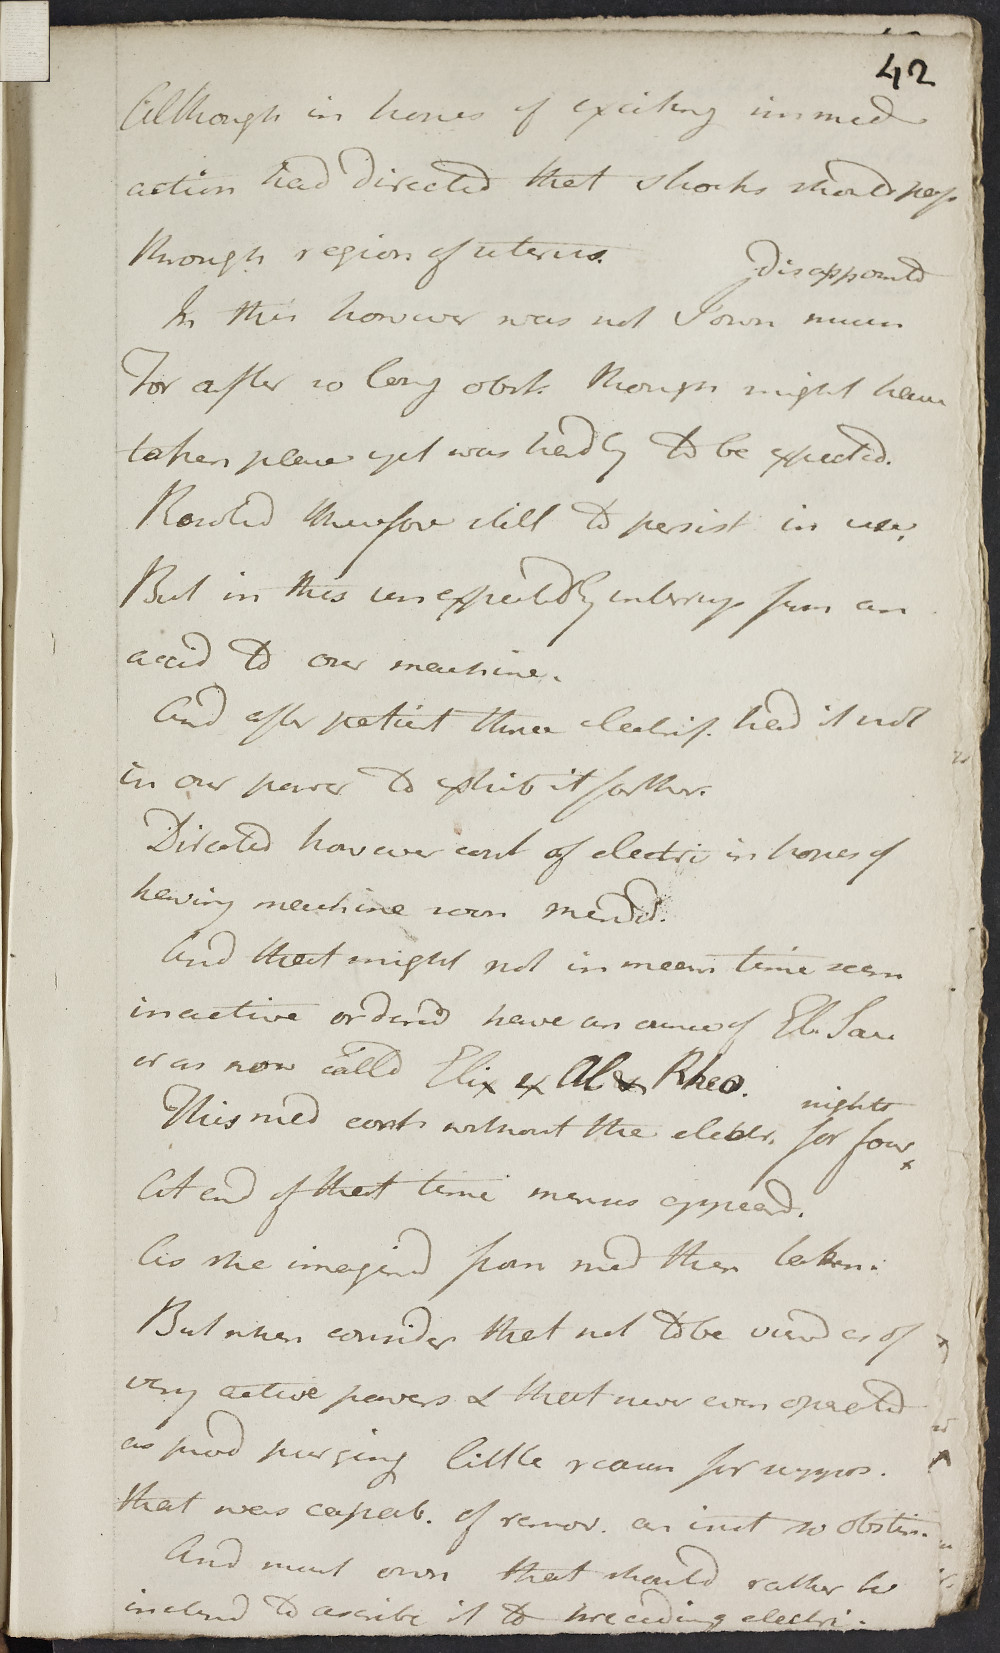 42
Although in hopes of exciting immed
action had directed that shocks should pass
through region of uterus.
disappointd
In this however was not I own much
For after so long obst. though might have
taken place yet was hardly to be expected.
Resolvd therefore still to persist in use,
But in this unexpectedly interrup from an
accid to our machine.
And after patient thrice electrif. had it not
in our power to exhib it farther.
Directed however cont of electri in hopes of
having machine soon mendd.
And that might not in mean time seem
inactive orderd have an ounce of El. Sac
or as now calld Elix ex Aloe & Rheo.
nights
This med contd without the electr. for four
At end of that time menses appeard.
As she imagind from med then taken.
But when consider that not to be viewd as of
very active powers & that never even operated
as prod purging little reason for suppos.
that was capab. of remov. an inst so obstin.
And must own that should rather be
inclind to ascribe it to preceeding electri.